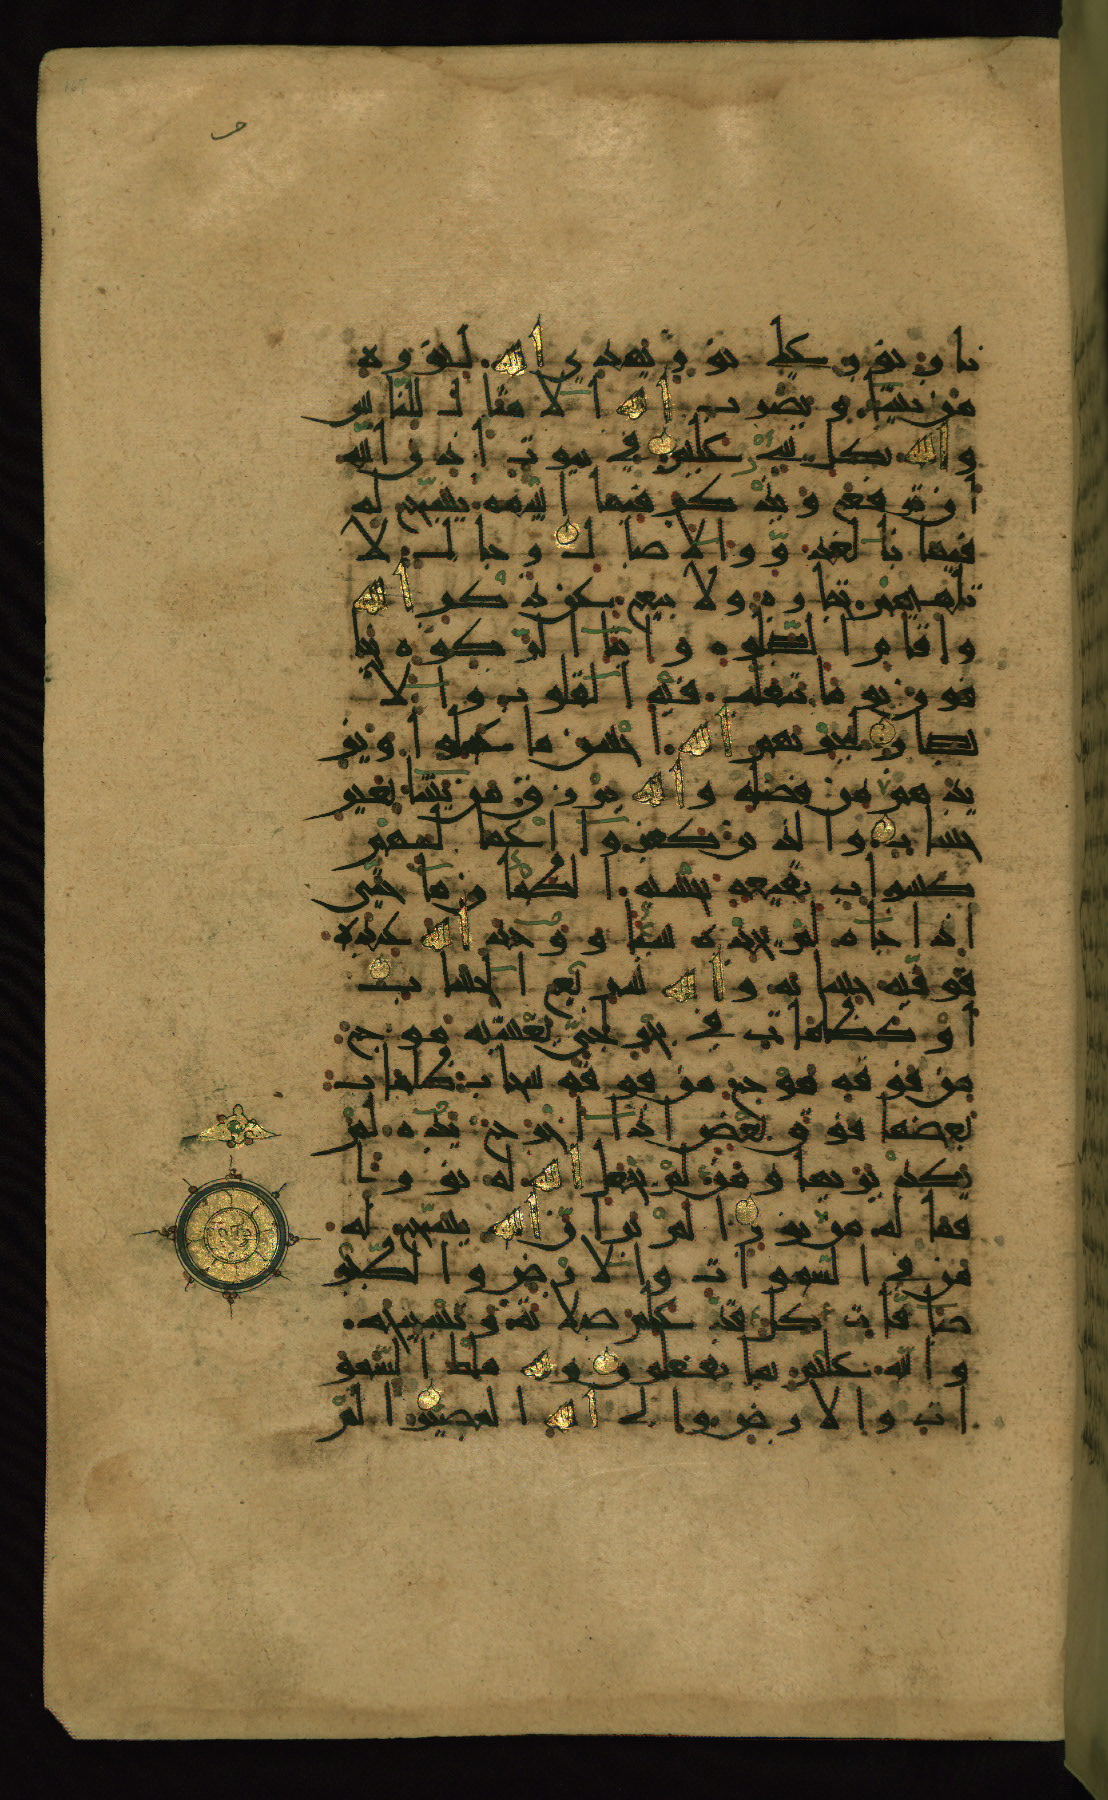 نار نور على نور يهدي الله لنوره
من يشا ويضرب الله الامثال للناس
والله بكل شي عليم في بيوت اذن الله
ان ترفع ويذكر فيها اسمه يسبح له
فيها بالغدو والاصال رجال لا
تلهيهم تجارة ولا بيع عن ذكر الله
واقام الصلوة وايتا الزكوة يخا
فون يوما تتقلب فيه القلوب والا
بصار ليجزيهم الله احسن ما عملوا ويز
يدهم من فضله والله يرزق من يشا بغير
حساب والذين كفروا اعمالهم
كسراب بقيعة يحسبه الظمان ما حتى
اذا جاه لم يجده شيا ووجد الله عنده
فوفيه حسابه والله سريع الحساب
او كظلمات في بحر لجي يغشيه موج
من فوقه موج من فوقه سحاب ظلمات
بعضها فوق بعض اذا اخرج يده لم
يكد يريها ومن لم يجعل الله له نورا
فما له من نور الم تر ان الله يسبح له
من في السموات والارض والطير
صافات كل قد علم صلاته وتسبيحه
والله عليم بما يفعلون ولله ملك السمو
ات والارض والى الله المصير الم